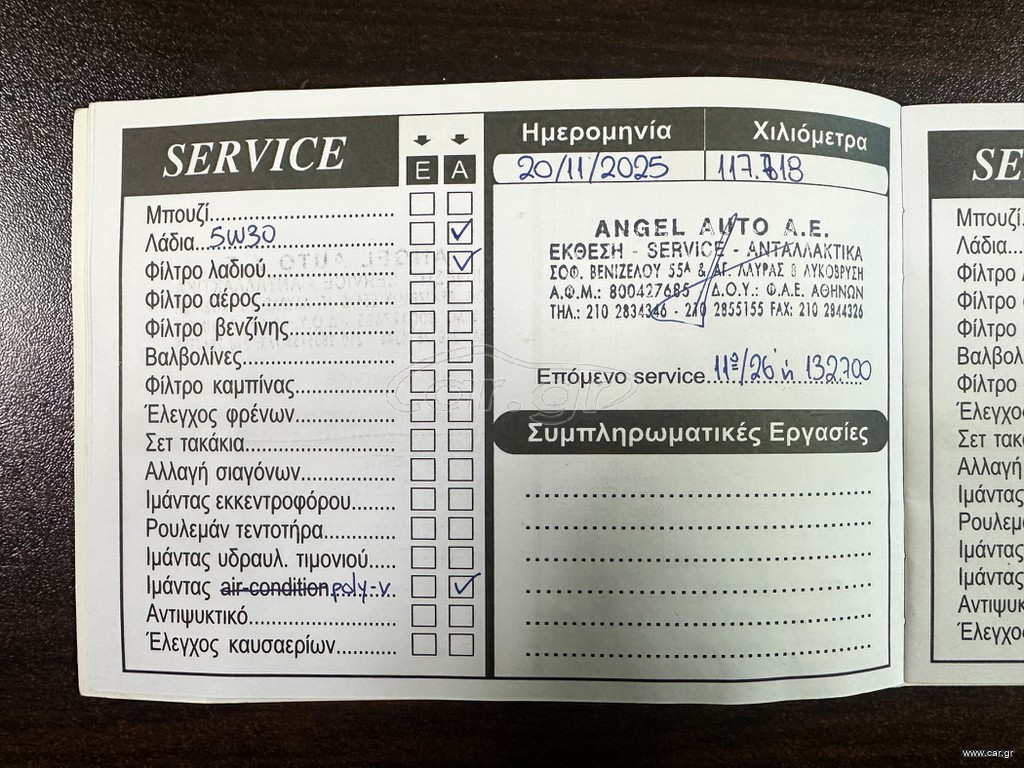 SERVICE
Ε Α
Μπουζί
Λάδια 5W30
Φίλτρο λαδιού
Φίλτρο αέρος
Φίλτρο βενζίνης
Βαλβολίνες
Φίλτρο καμπίνας
Έλεγχος φρένων
Σετ τακάκια
Αλλαγή σιαγόνων
Ιμάντας εκκεντροφόρου
Ρουλεμάν τεντοτήρα
Ιμάντας υδραυλ. τιμονιού
Ιμάντας air-condition poly-v
Αντιψυκτικό
Έλεγχος καυσαερίων
Ημερομηνία Χιλιόμετρα
20/11/2025
ANGEL AUTO A.E.
ΕΚΘΕΣΗ - SERVICE - ΑΝΤΑΛΛΑΚΤΙΚΑ
ΣΟΦ. ΒΕΝΙΖΕΛΟΥ 55Α & ΑΓ. ΛΑΥΡΑΣ 8 ΛΥΚΟΒΡΥΣΗ
Α.Φ.Μ.: 800427685 Δ.Ο.Υ.: Φ.Α.Ε. ΑΘΗΝΩΝ
ΤΗΛ.: 210 2834346 - 210 2855155 FAX: 210 2844326
Επόμενο service 11ος/26 ή 132700
Συμπληρωματικές Εργασίες
SE
Μπουζί
Λάδια
Φίλτρο
Φίλτρο
Φίλτρο
Βαλβολ
Φίλτρο
Έλεγχο
Σετ τακ
Αλλαγή
Ιμάντας
Ρουλεμ
Ιμάντας
Ιμάντας
Αντιψυκ
Έλεγχο
car.gr
www.car.gr